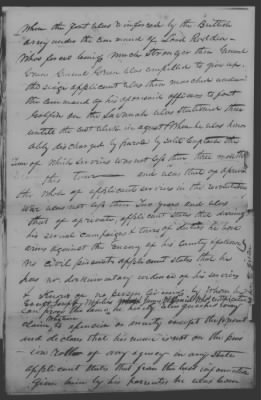 When the fort was reinforced by the British
army under the command of Lord Rodden
Whose force being much stronger than General
Green General Green was compelled to give up
the seige applicant was then marched under
the command of his aforesaid officers to fort
Golphin on the Savannah was stationed there
untill the last week in august When he was honor
ably discharged by Parole by said Capt
time of which services was not less than three months
this time and was that of a private
the whole of applicants services in the revolution
War was not less than two years and was
that of a private, applicant states that during
his several campaigns & tours of duties he bore
arms against the enemy of his country
no civil pursuits applicant states that he
has no documentary evidence of his services
& knows of no person living by whom he
can prove the same he hereby relinquishes every
claim to a pension or annuity except the present
and declares that his name is not on the pen
sion Roll of any agency in any state
applicant states that from the best information
given him by his parents he was born